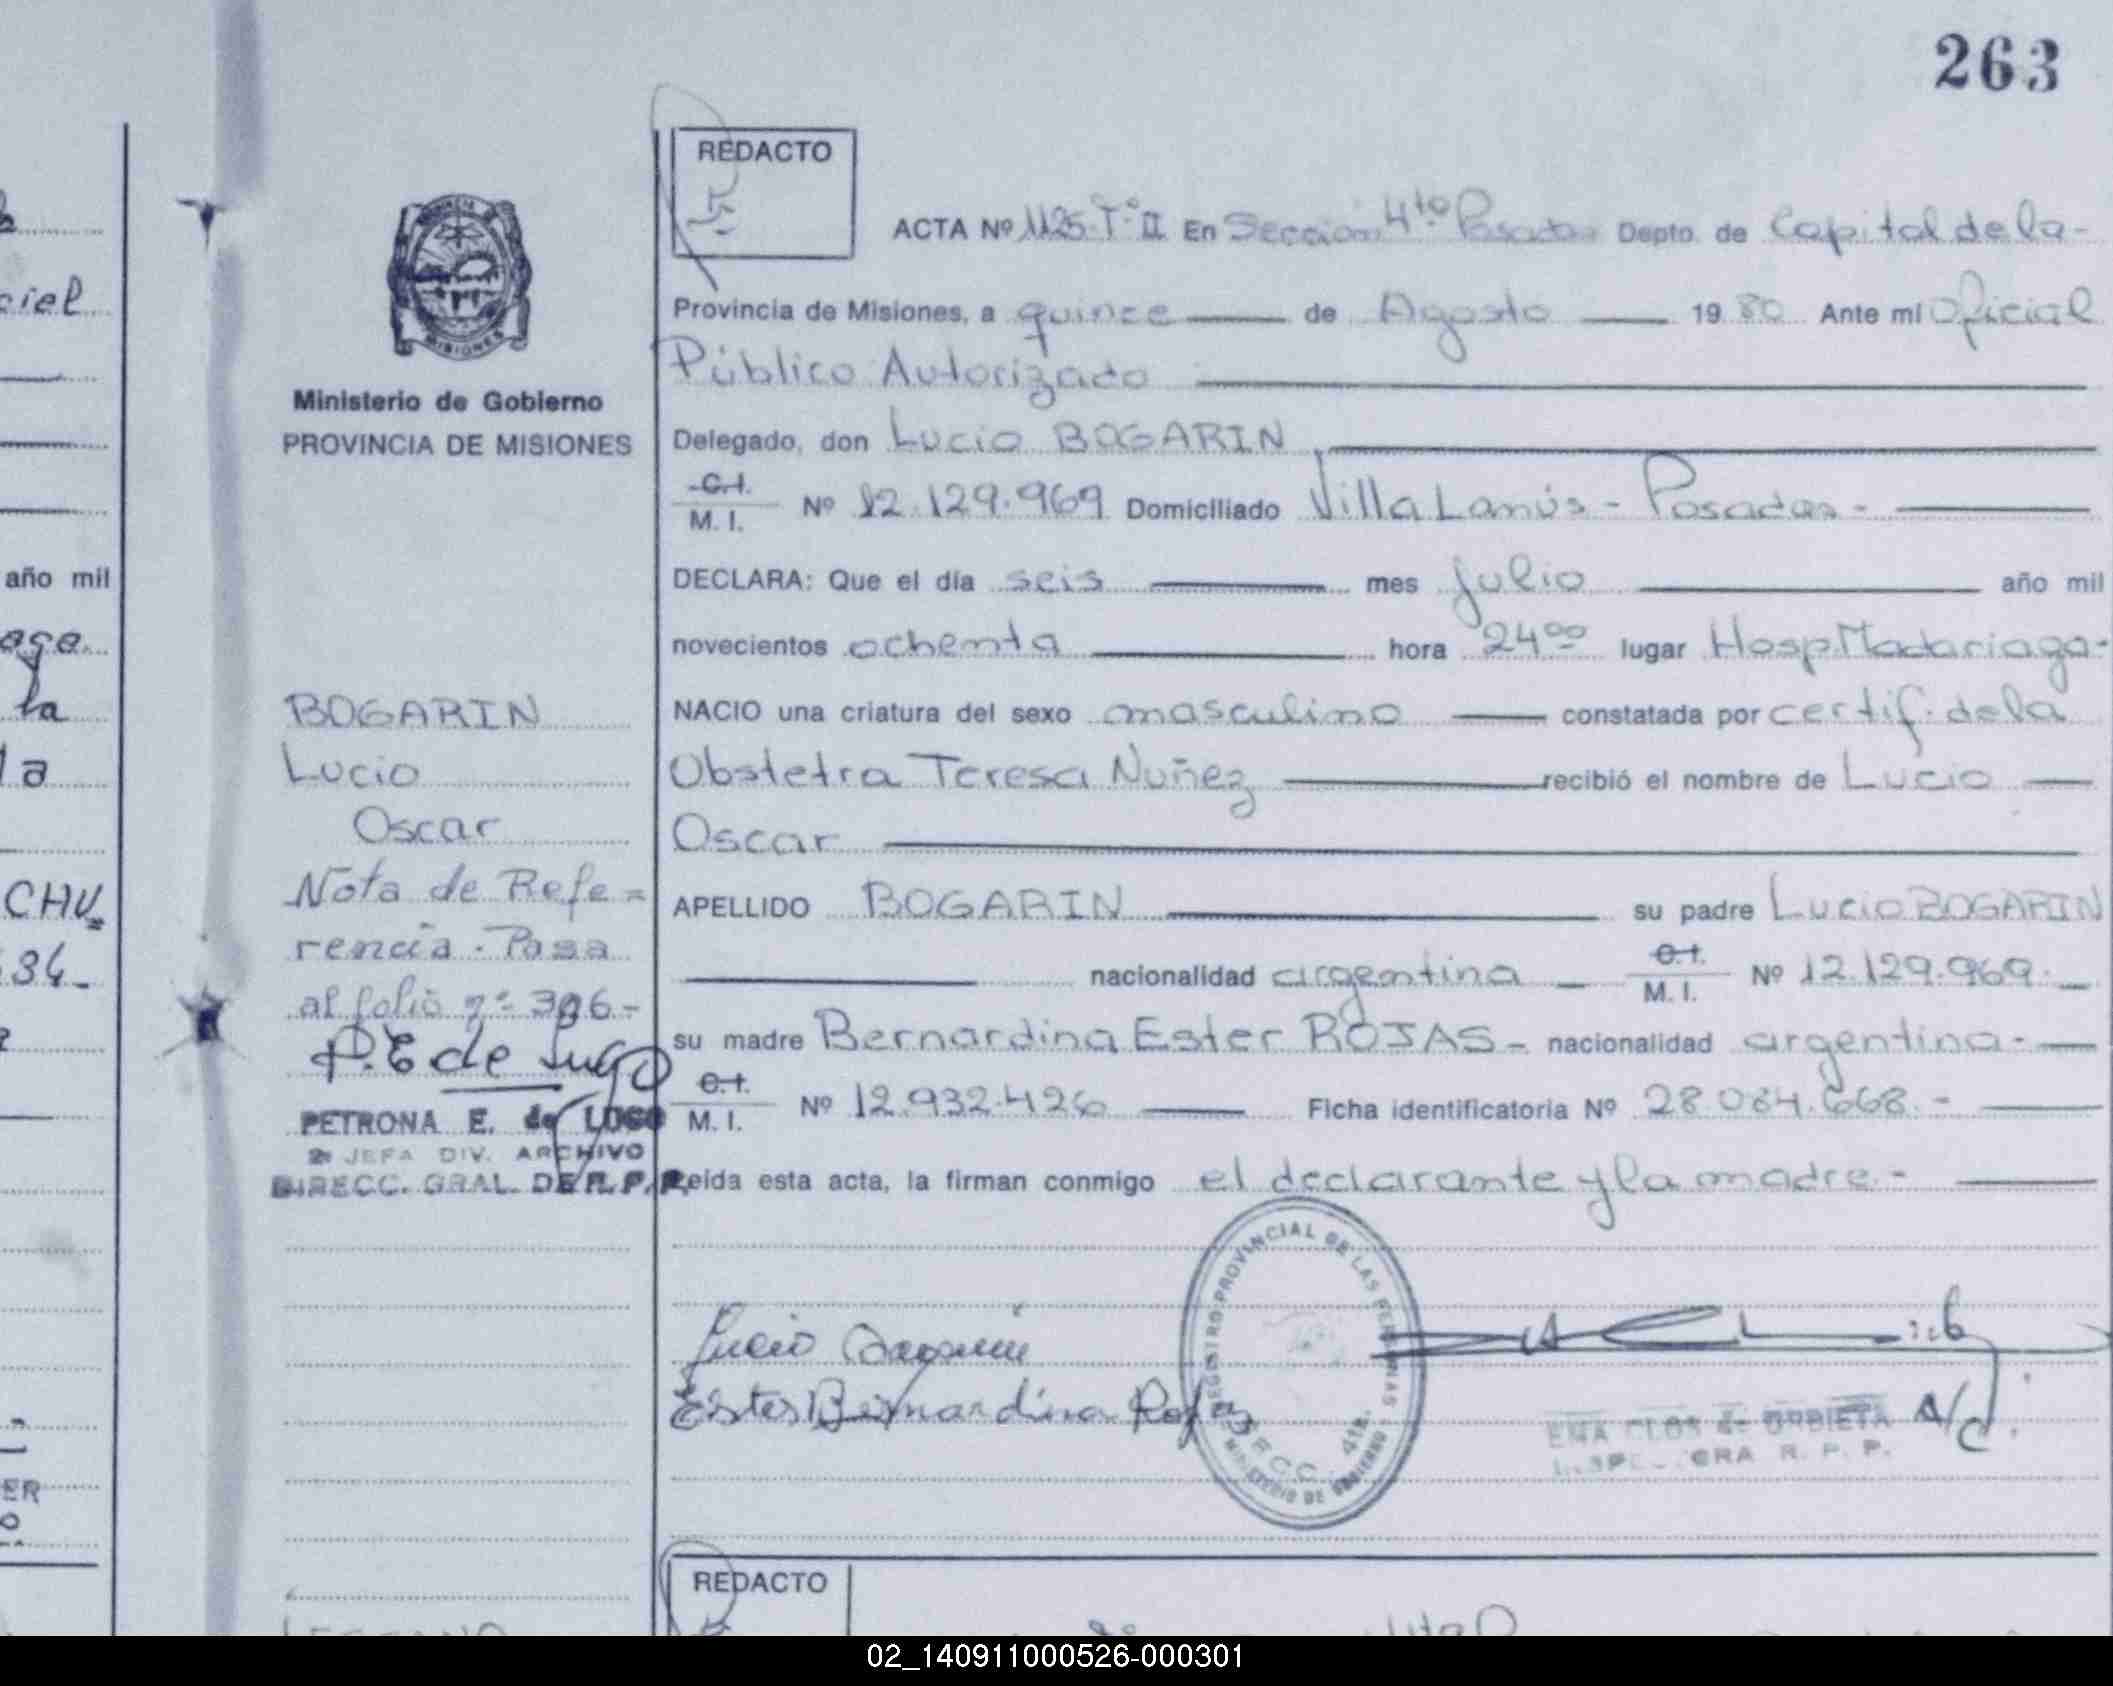 263
REDACTO
ACTA Nº 1125-Tº II En Sección 4to Posadas Depto. de Capital de la-
Provincia de Misiones, a quince de Agosto 1980 Ante mí Oficial
Público Autorizado
Delegado, don Lucio BOGARIN
C.I.
M. I. Nº 12.129.969 Domiciliado Villa Lanús - Posadas-
DECLARA: Que el día seis mes julio año mil
novecientos ochenta hora 24oo lugar Hosp. Madariaga-
NACIO una criatura del sexo masculino constatada por certif. de la
Obstetra Teresa Nuñez recibió el nombre de Lucio
Oscar
APELLIDO BOGARIN su padre Lucio BOGARIN
nacionalidad argentina C.I.
M. I. Nº 12.129.969.
su madre Bernardina Ester ROJAS- nacionalidad argentina-
C.I.
M. I. Nº 12.932.426 Ficha identificatoria Nº 28.084.668.-
Leída esta acta, la firman conmigo el declarante y la madre.-
Lucio Bogarin
Ester Bernardina Rojas
REGISTRO PROVINCIAL DE LAS PERSONAS
MINISTERIO DE GOBIERNO
4ta.
EMA CLOS de URBIETA A/C.
INSPECTORA R. P. P.
PROVINCIA DE
MISIONES
Ministerio de Gobierno
PROVINCIA DE MISIONES
BOGARIN
Lucio
Oscar
Nota de Refe=
rencia. Pasa
al folio nº 396-
P. E de Lugo
PETRONA E. de LUGO
JEFA DIV. ARCHIVO
DIRECC. GRAL. DE R. P. P.
REDACTO
ciel
año mil
la
CHU
34-
ER
02_140911000526-000301